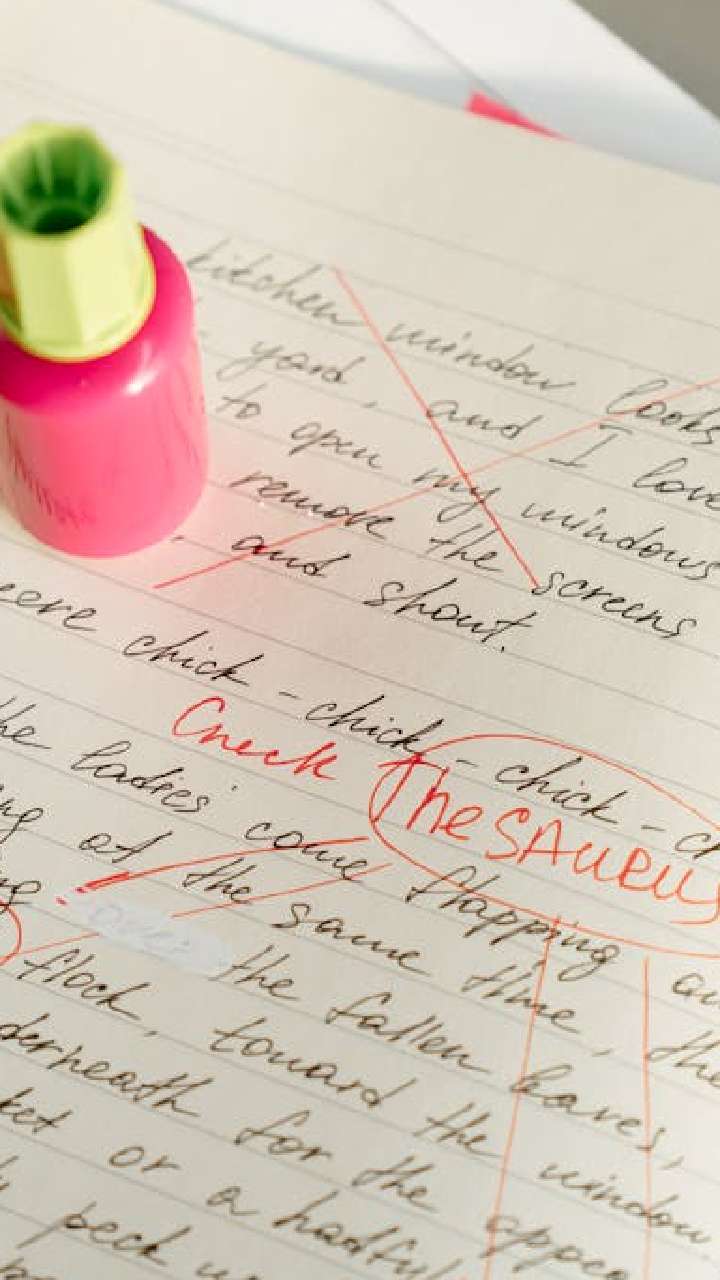 kitchen window looks
yard, and I love
to open my windows
remove the screens
and shout.
eere chick - chick - chick - ch
Check TheSAURUS
he ladies come flapping
ng at the same time, the
ng the fallen leaves,
flock, toward the window
derneath for the appea
ket or a hadful
peck